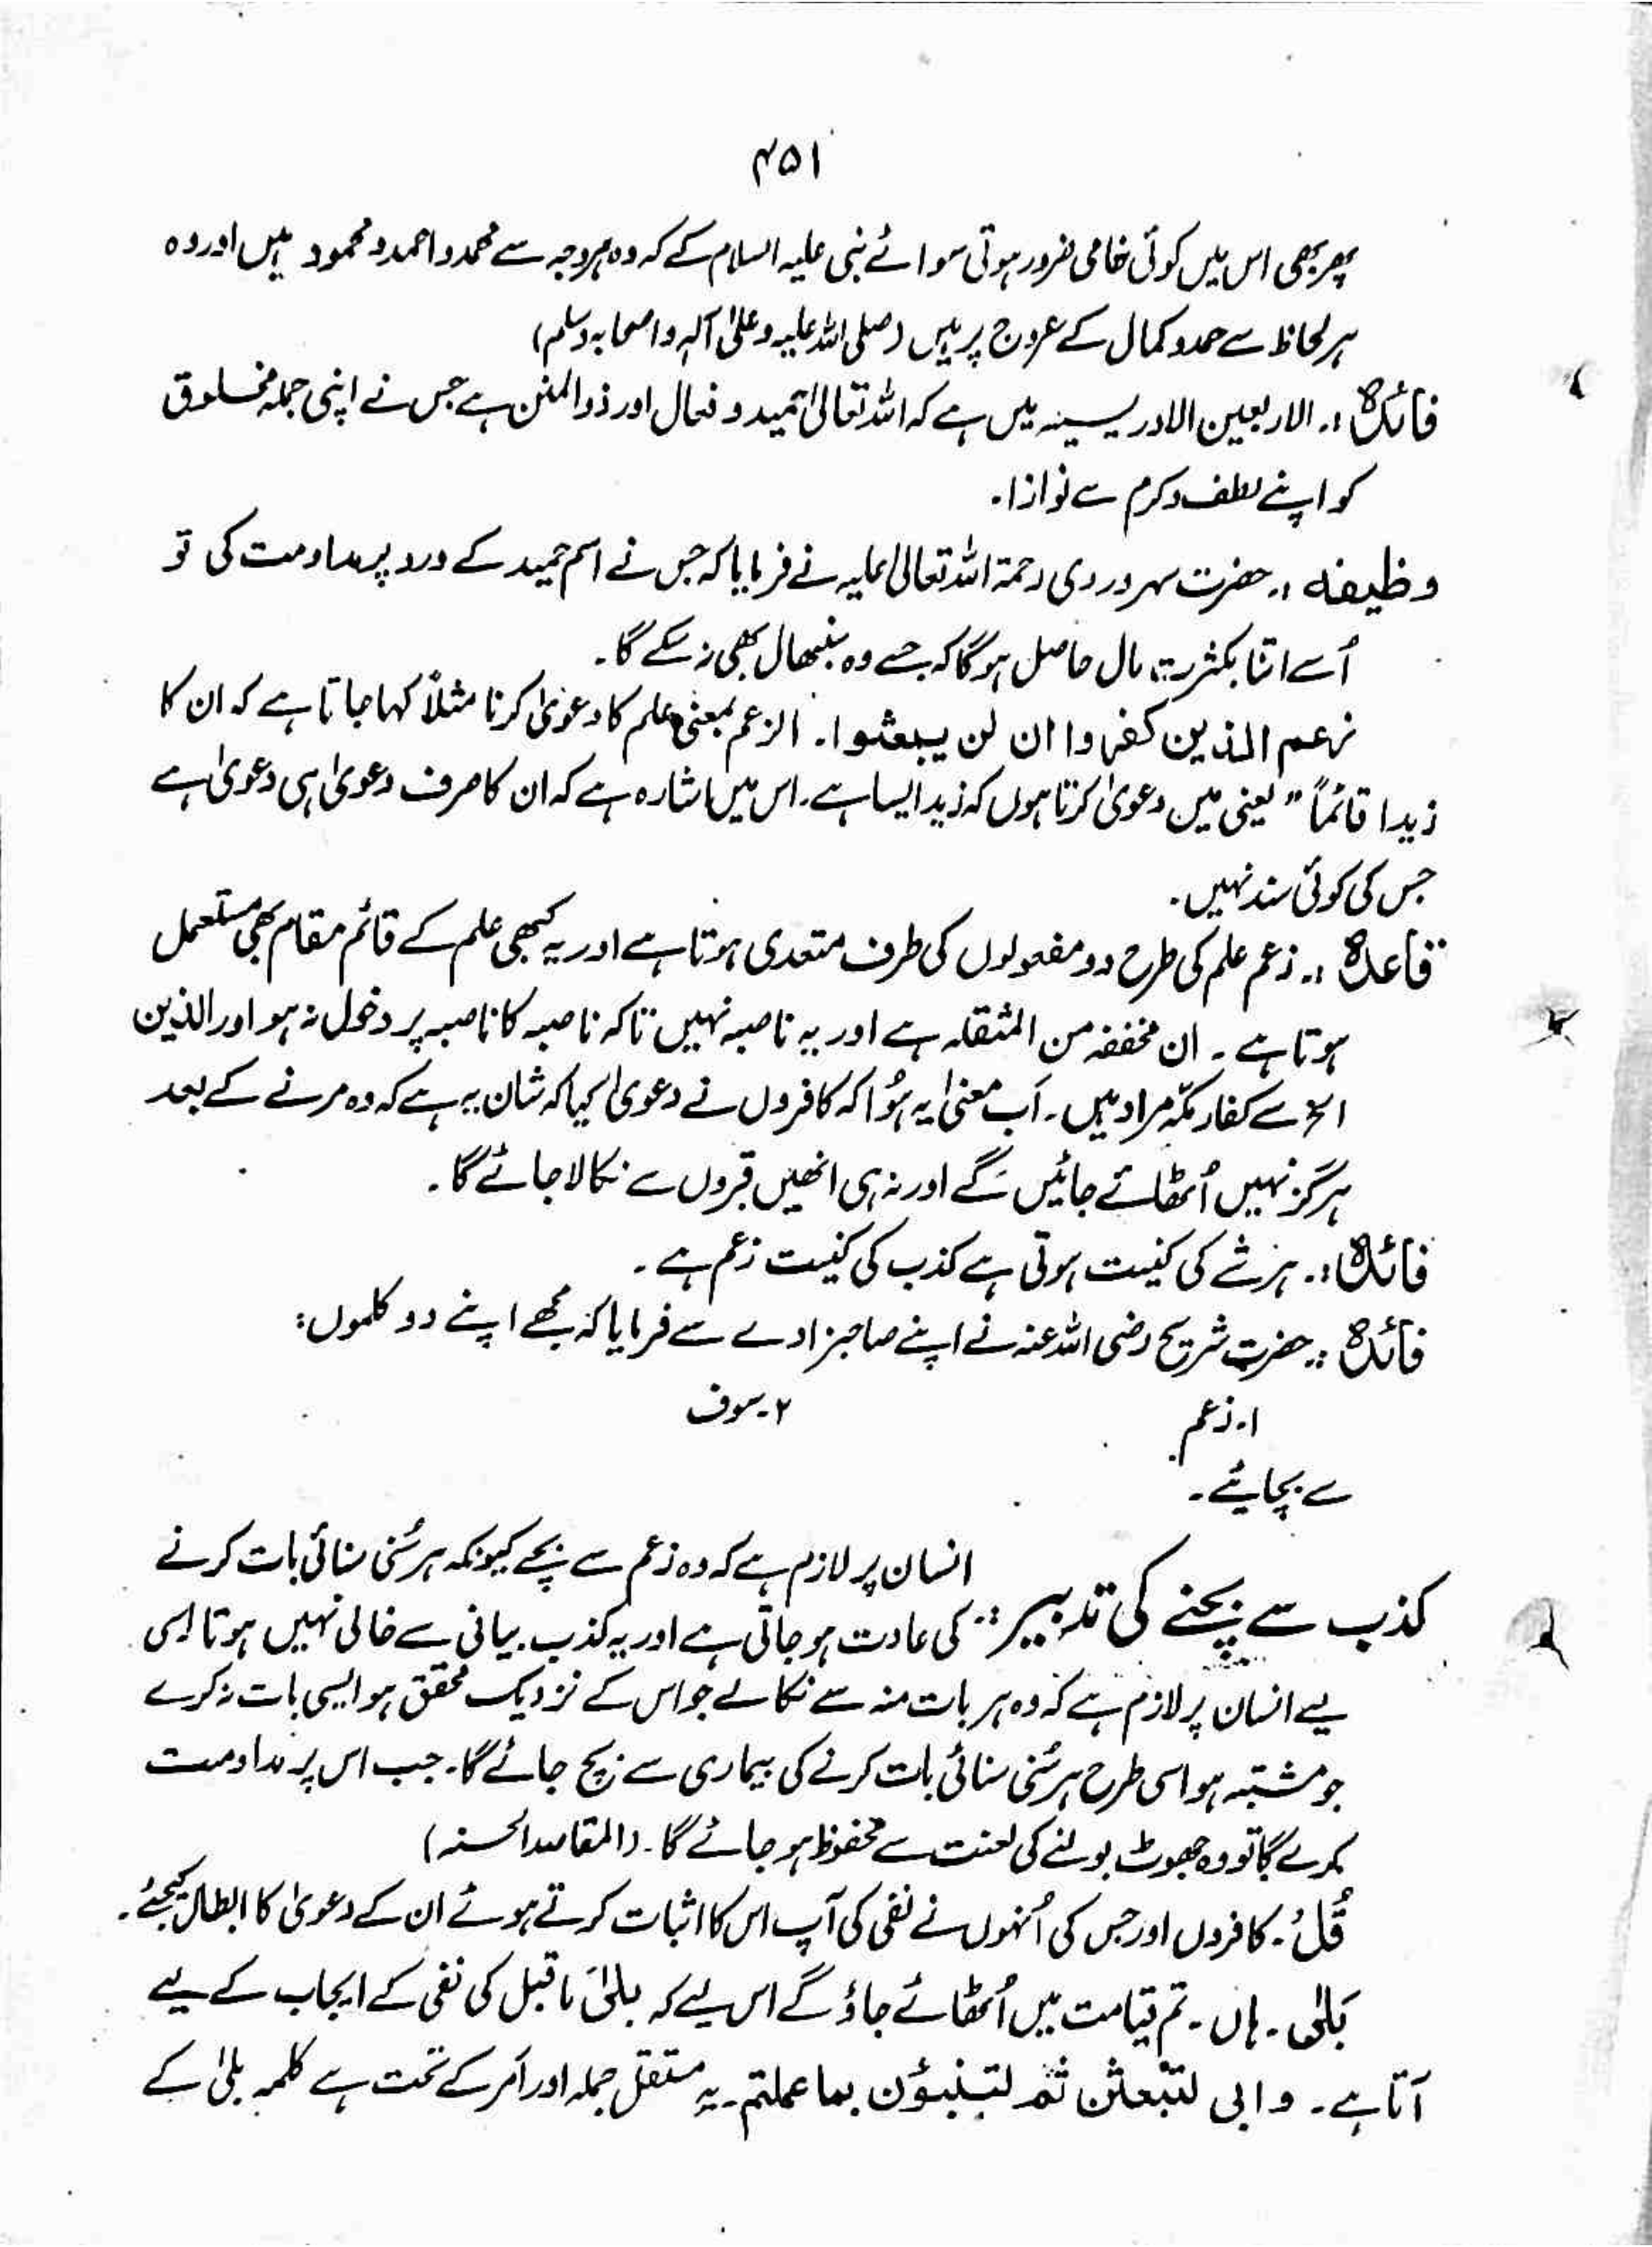 ۴۵۱
پھر بھی اس میں کوئی خامی ضرور ہوتی سوائے نبی علیہ السلام کے کہ وہ ہر وجہ سے محمد و احمد و محمود ہیں اور وہ
ہر لحاظ سے حمد و کمال کے عروج پر ہیں (صلی اللہ علیہ وعلیٰ آلہٖ واصحابہ وسلم)
فائدہ :۔ الاربعین الادریسیہ میں ہے کہ اللہ تعالیٰ حمید و فعال اور ذوالمنن ہے جس نے اپنی جملہ مخلوق
کو اپنے لطف و کرم سے نوازا۔
وظیفہ :۔ حضرت سہروردی رحمۃ اللہ تعالیٰ علیہ نے فرمایا کہ جس نے اسم حمید کے ورد پر مداومت کی تو
اُسے اتنا بکثرت مال حاصل ہوگا کہ جسے وہ سنبھال بھی نہ سکے گا۔
زعم الذین کفروا ان لن یبعثوا۔ الزعم بمعنیٰ علم کا دعویٰ کرنا مثلاً کہا جاتا ہے کہ ان کا
زیدا قائماً" یعنی میں دعویٰ کرتا ہوں کہ زید ایسا ہے۔ اس میں اشارہ ہے کہ ان کا صرف دعویٰ ہی دعویٰ ہے
جس کی کوئی سند نہیں۔
قاعدہ :۔ زعم علم کی طرح دو مفعولوں کی طرف متعدی ہوتا ہے اور یہ کبھی علم کے قائم مقام بھی مستعمل
ہوتا ہے۔ ان مخففہ من المثقلہ ہے اور یہ ناصبہ نہیں تاکہ ناصبہ کا ناصبہ پر دخول نہ ہو اور الذین
الخ سے کفار مکہّ مراد ہیں۔ اَب معنیٰ یہ ہُوا کہ کافروں نے دعویٰ کیا کہ شان یہ ہے کہ وہ مرنے کے بعد
ہرگز نہیں اُٹھائے جائیں گے اور نہ ہی انھیں قبروں سے نکالا جائے گا۔
فائدہ :۔ ہر شے کی کنیت ہوتی ہے کذب کی کنیت زعم ہے۔
فائدہ :۔ حضرت شریح رضی اللہ عنہ نے اپنے صاحبزادے سے فرمایا کہ مجھے اپنے دو کلموں:
۱۔ زعم ۲۔ سوف
سے بچائیے۔
کذب سے بچنے کی تدبیر :۔ انسان پر لازم ہے کہ وہ زعم سے بچے کیونکہ ہر سُنی سنائی بات کرنے
کی عادت ہو جاتی ہے اور یہ کذب بیانی سے خالی نہیں ہوتا اسی
لیے انسان پر لازم ہے کہ وہ ہر بات منہ سے نکالے جو اس کے نزدیک محقق ہو ایسی بات نہ کرے
جو مشتبہ ہو اسی طرح ہر سُنی سنائی بات کرنے کی بیماری سے بچ جائے گا۔ جب اس پر مداومت
کرے گا تو وہ جھوٹ بولنے کی لعنت سے محفوظ ہو جائے گا۔ (المقاصد الحسنہ)
قُلْ۔ کافروں اور جس کی اُنہوں نے نفی کی آپ اس کا اثبات کرتے ہوئے ان کے دعویٰ کا ابطال کیجئے۔
بَلٰی۔ ہاں۔ تم قیامت میں اُٹھائے جاؤ گے اس لیے کہ بلیٰ ما قبل کی نفی کے ایجاب کے لیے
آتا ہے۔ و ربی لتبعثن ثم لتنبؤن بما عملتم۔ یہ مستقل جملہ اور اَمر کے تحت ہے کلمہ بلیٰ کے